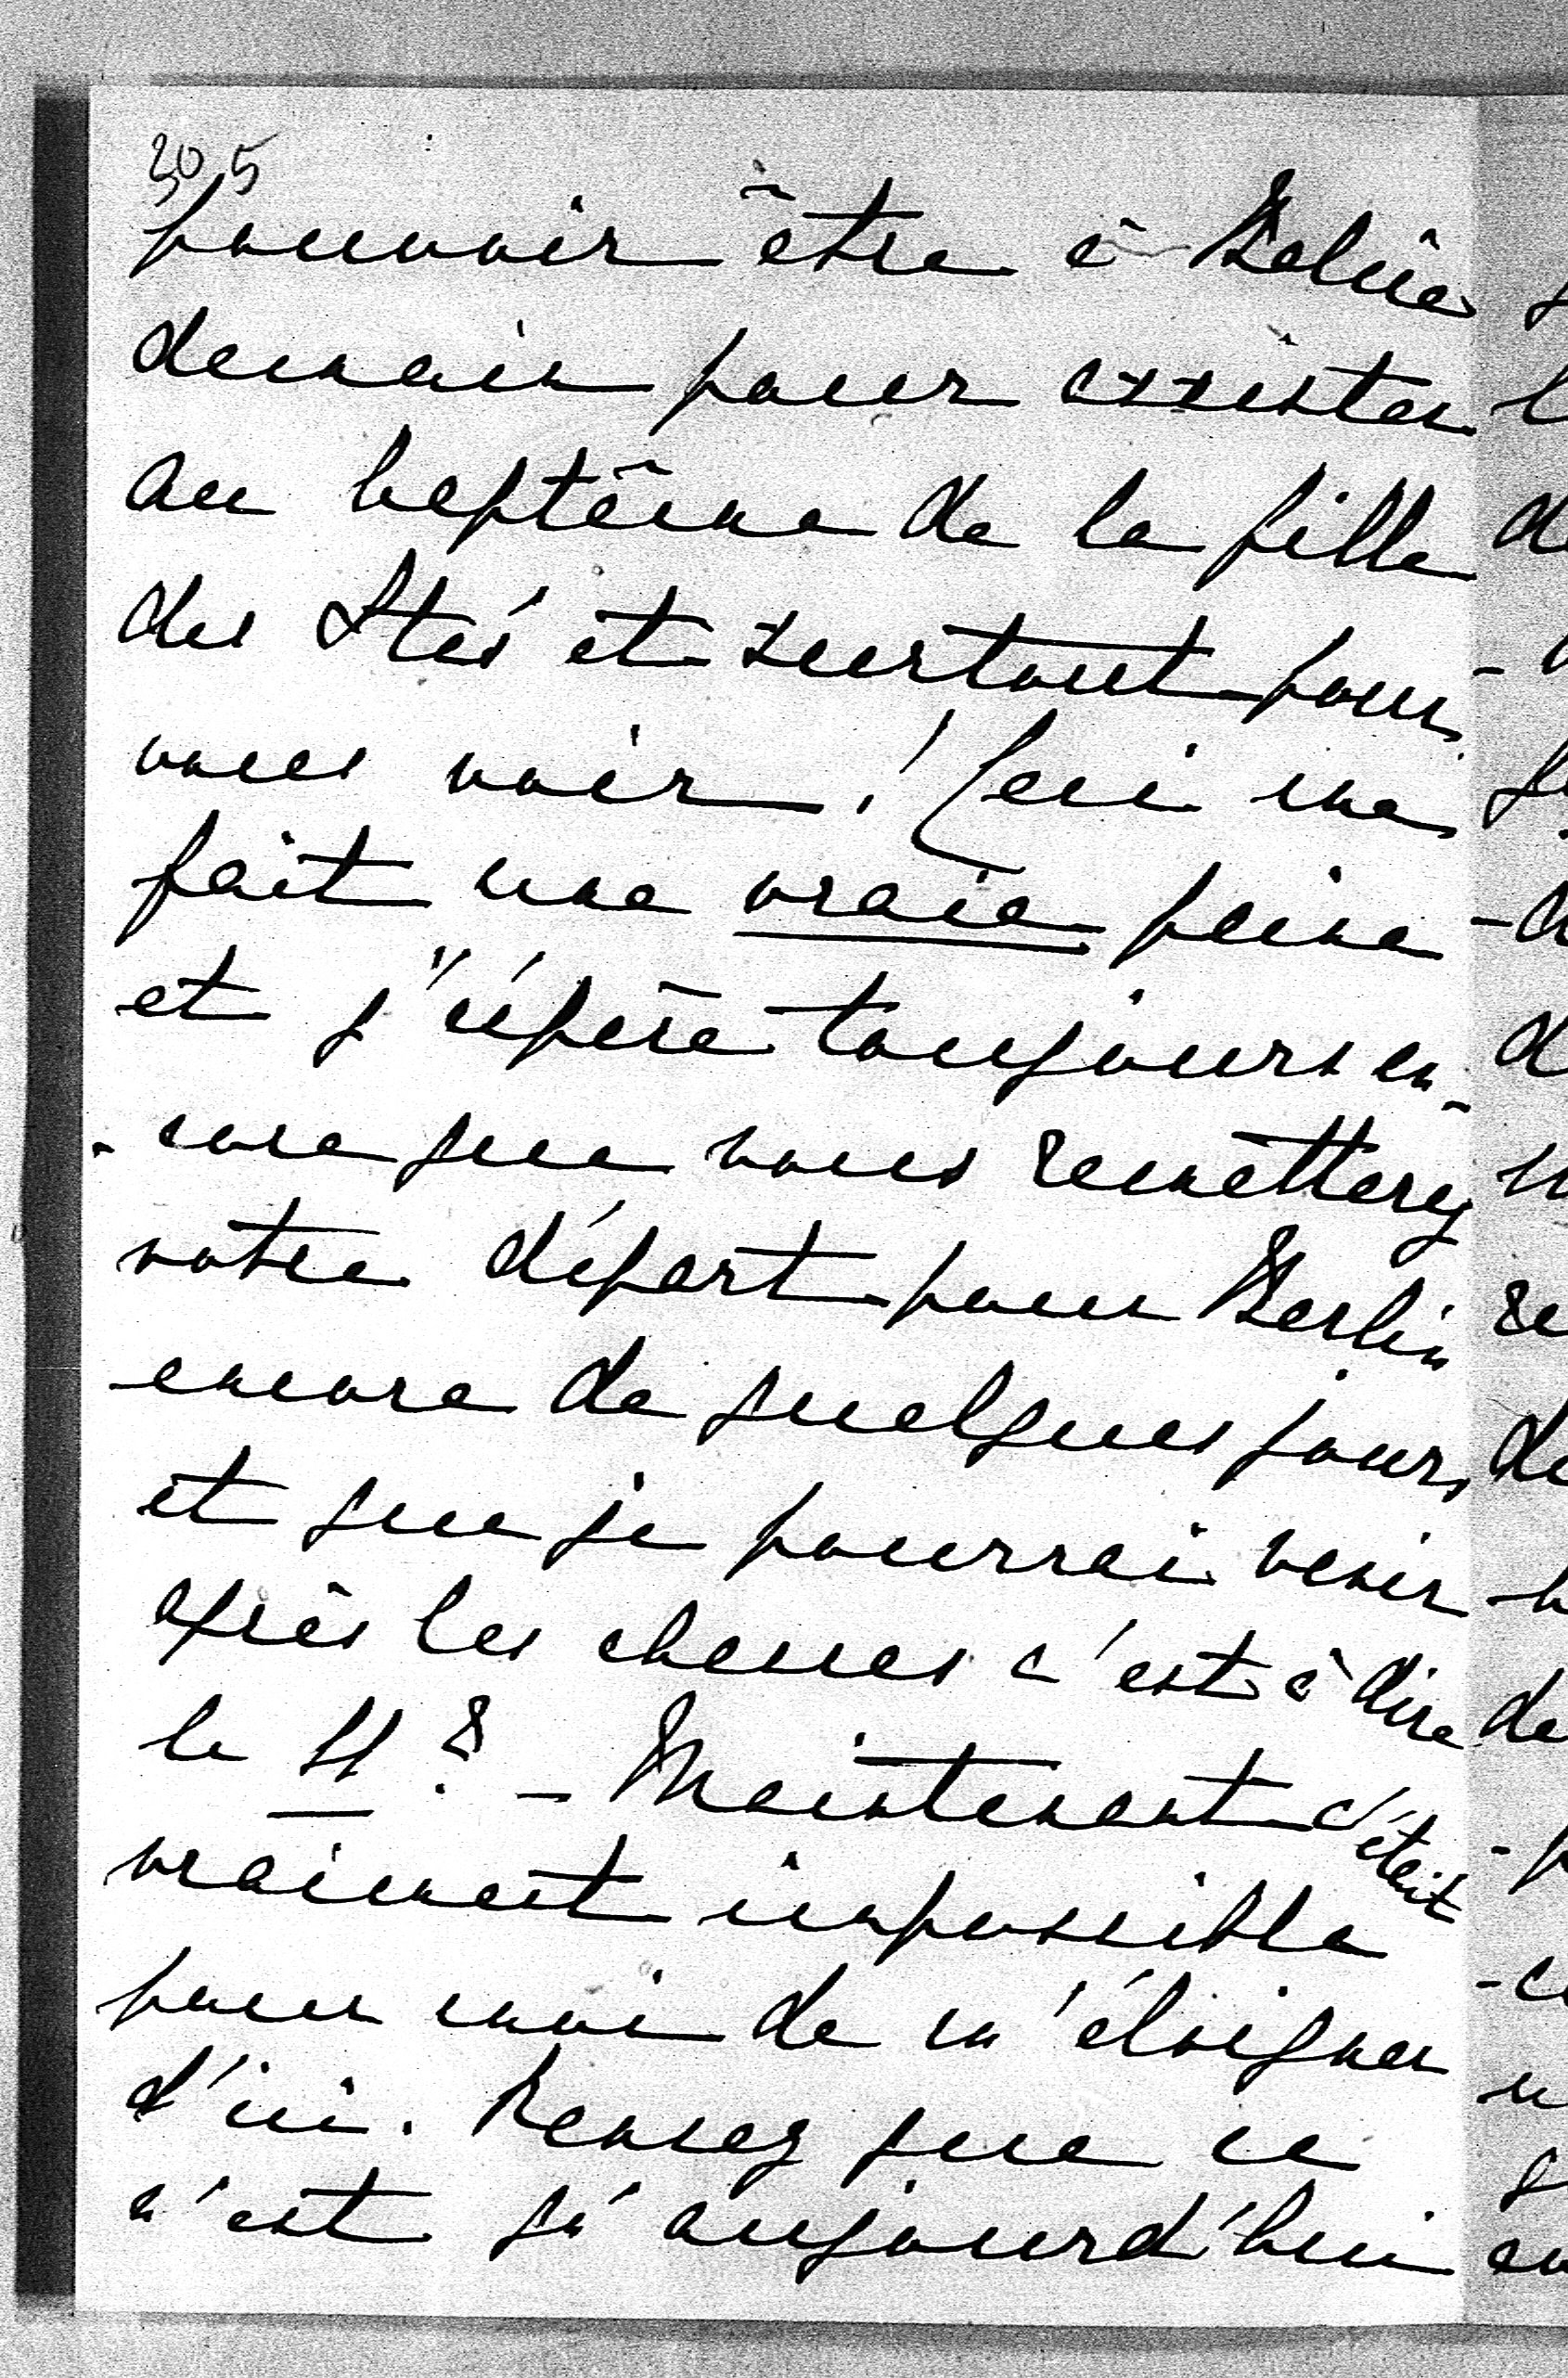 205
pouvoir être à Kolin
demain pour assister
au baptême de la fille
des Ste's et surtout pour
vous voir! Ceci me
fait une vraie peine
et j'éspère toujours en-
-core que vous remetterez
votre départ pour Berlin
encore de quelques jours
et que je pourrai venir
après les chasses c'est à dire
le 11? – Maintenant c'était
vraiment impossible
pour moi de m'éloigner
d'ici. Pensez que ce
n'est qu'aujourd'hui